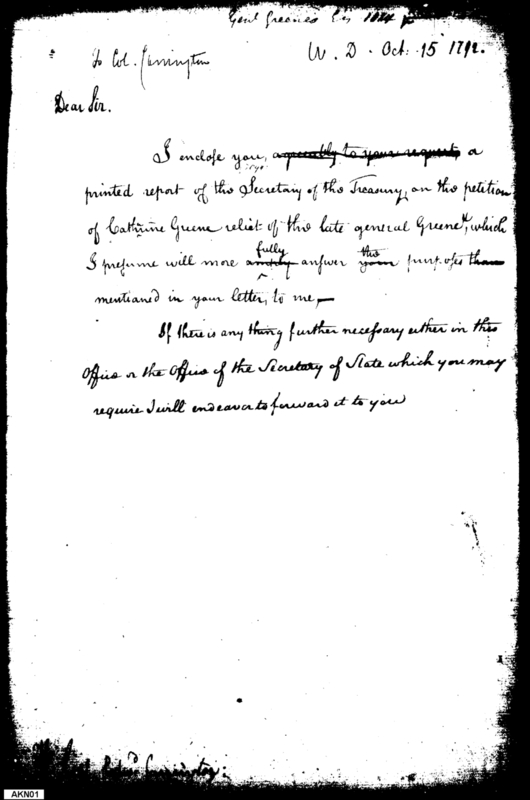 Genl Greene's
To Col. Carrington
W. D. Oct: 15 1792.
Dear Sir.
I enclose you, agreeably to your request a
printed report of the Secretary of the Treasury, on the petition
of Cathrine Greene relict of the late general Greene, which
fully the
I presume will more amply answer your purposes than
mentioned in your letter, to me,
If there is any thing further necessary either in this
Office or the Office of the Secretary of State which you may
require I will endeavor to forward it to you
Carrington:
AKN01